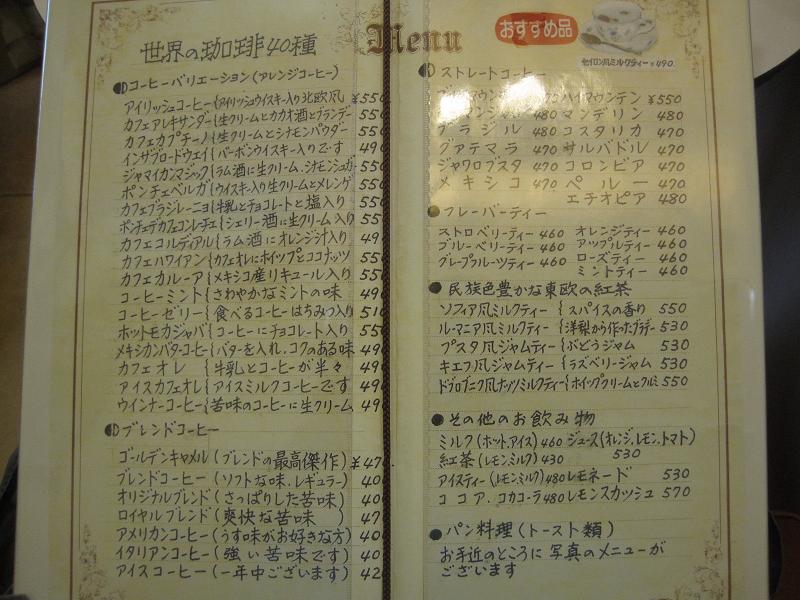 世界の珈琲40種
コーヒーバリエーション(アレンジコーヒー)
アイリッシュコーヒー{アイリッシュウイスキー入り北欧風 ¥550
カフェアレキサンダー{生クリームとカカオ酒とブランデー 550
カフェカプチーノ{生クリームとシナモンパウダー 550
インザブロードウェイ{バーボンウイスキー入りです 490
ジャマイカンマジック{ラム酒に生クリーム、シナモンシュガー 550
ポンチェベルガ{ウイスキー入り生クリームとメレンゲ 550
カフェブラジレーニョ{牛乳とチョコレートと塩入り 550
ポンチェデカフェコンレーチェ{シェリー酒に生クリーム入り 550
カフェコルディアル{ラム酒にオレンジ汁入り 490
カフェハワイアン{カフェオレにホイップとココナッツ 550
カフェカルーア{メキシコ産リキュール入り 550
コーヒーミント{さわやかなミントの味 490
コーヒーゼリー{食べるコーヒーはちみつ入り 510
ホットモカジャバ{コーヒーにチョコレート入り 550
メキシカンバターコーヒー{バターを入れ、コクのある味 490
カフェオレ{牛乳とコーヒーが半々 490
アイスカフェオレ{アイスミルクコーヒーです 490
ウインナーコーヒー{苦味のコーヒーに生クリーム 490
ブレンドコーヒー
ゴールデンキャメル(ブレンドの最高傑作) ¥47
ブレンドコーヒー(ソフトな味、レギュラー) 40
オリジナルブレンド(さっぱりした苦味) 40
ロイヤルブレンド(爽快な苦味) 47
アメリカンコーヒー(うす味がお好きな方) 40
イタリアンコーヒー(強い苦味です) 40
アイスコーヒー(一年中ございます) 42
Menu
おすすめ品
セイロン風ミルクティー ¥490
ストレートコーヒー
ハイマウンテン ¥550
480 マンデリン 480
ブラジル 480 コスタリカ 470
グァテマラ 470 サルバドル 470
ジャワロブスタ 470 コロンビア 470
メキシコ 470 ペルー 470
エチオピア 480
フレーバーティー
ストロベリーティー 460 オレンジティー 460
ブルーベリーティー 460 アップルティー 460
グレープフルーツティー 460 ローズティー 460
ミントティー 460
民族色豊かな東欧の紅茶
ソフィア風ミルクティー{スパイスの香り 550
ルーマニア風ミルクティー{洋梨から作ったブランデー 530
プスタ風ジャムティー{ぶどうジャム 530
キエフ風ジャムティー{ラズベリージャム 530
ドゥブロブニク風ナッツミルクティー{ホイップクリームとクルミ 550
その他のお飲み物
ミルク(ホット、アイス) 460 ジュース(オレンジ、レモン、トマト)
紅茶(レモン、ミルク) 430 530
アイスティー(レモン、ミルク) 480 レモネード 530
ココア、コカコーラ 480 レモンスカッシュ 570
パン料理(トースト類)
お手近のところに写真のメニューが
ございます